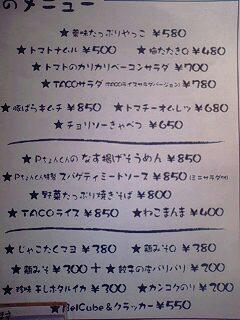 のメニュー
★薬味たっぷりやっこ ¥580
★トマトナムル ¥500 ★梅たたきQ ¥480
★トマトのカリカリベーコンサラダ ¥700
★TACOサラダ(TACOライスサラダバージョン) ¥780
★豚ばらキムチ ¥850 ★トマチーオムレツ ¥680
★チョリソーきゃべつ ¥650
★Pちょんくんの なす揚げそうめん ¥850
★Pちょんくん特製 スパゲティミートソース ¥850(ミニサラダ付)
★野菜たっぷり焼きそば ¥800
★TACOライス ¥850 ★ねこまんま ¥400
★じゃこたCマヨ ¥380 ★鶏みそQ ¥380
★鶏みそ ¥300 ★餃子の皮パリパリ ¥200
★珍味 干しホタルイカ ¥300 ★カンコクのり ¥200
★elCube&クラッカー ¥550